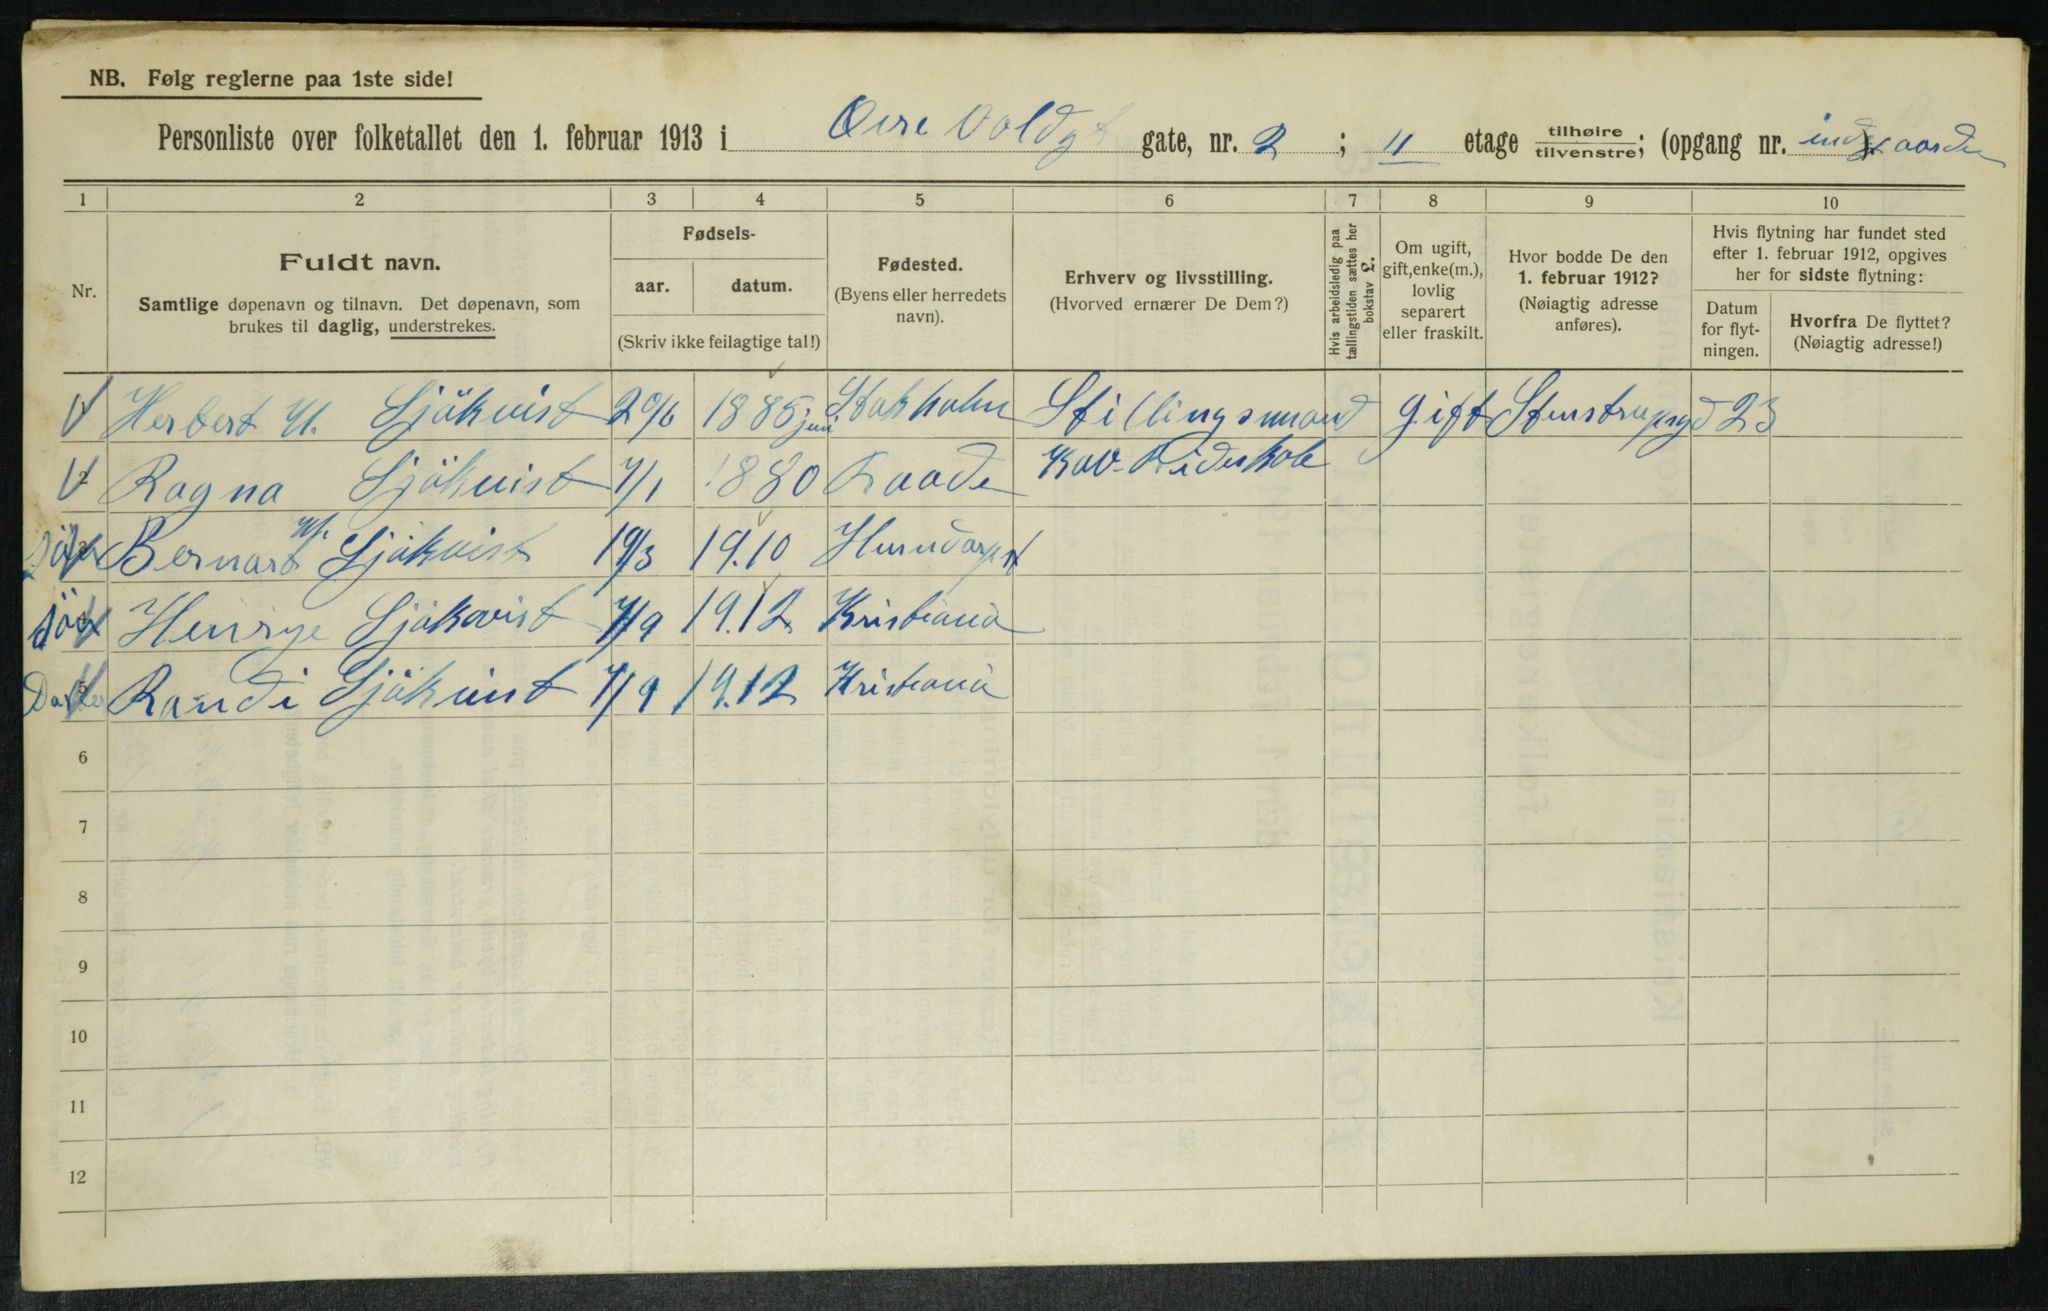 NB. Følg reglerne paa 1ste side!
Personliste over folketallet den 1. februar 1913 i Øvre Voldgt gate, nr. 2 ; 11 etage tilhøire tilvenstre; (opgang nr. indgaarden).
1 2 3 4 5 6 7 8 9 10
Nr.
Fuldt navn.
Samtlige døpenavn og tilnavn. Det døpenavn, som
brukes til daglig, understrekes.
Fødsels-
aar. datum.
(Skriv ikke feilagtige tal!)
Fødested.
(Byens eller herredets
navn).
Erhverv og livsstilling.
(Hvorved ernærer De Dem?)
Hvis arbeidsledig paa
tællingstiden sættes her
bokstav £.
Om ugift,
gift, enke(m.),
lovlig
separert
eller fraskilt.
Hvor bodde De den
1. februar 1912?
(Nøiagtig adresse
anføres).
Hvis flytning har fundet sted
efter 1. februar 1912, opgives
her for sidste flytning:
Datum
for flyt-
ningen.
Hvorfra De flyttet?
(Nøiagtig adresse!)
1 Herbert M. Sjökvist 20/6 1885 juni Stokholm Stillingsmand gift 23
Kav. Rideskole
2 Ragna Sjökvist 7/1 1880 Raade
Sön 3 Bernart M. Sjökvist 19/3 1910
Sön 4 Henrye Sjökvist 7/9 1912 Kristiania
5 Randi Sjökvist 7/9 1912 Kristiania
6
7
8
9
10
11
12